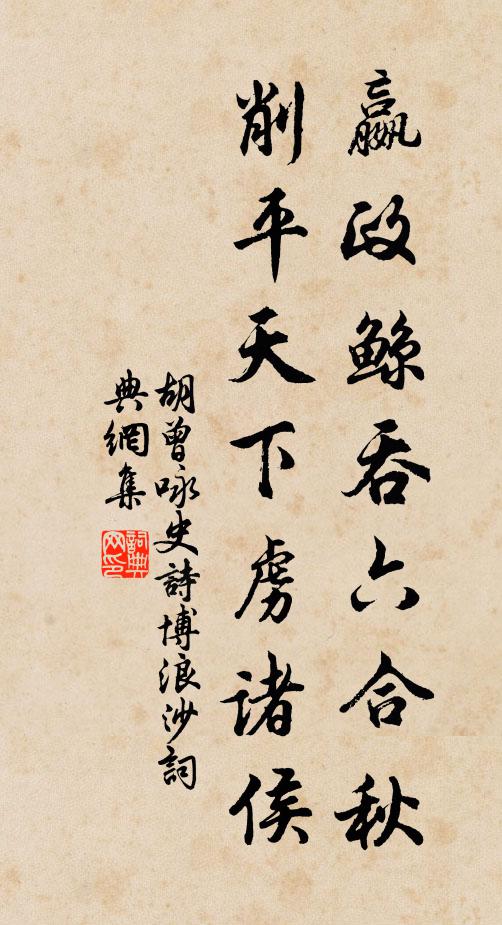 嬴政鲸吞六合秋
削平天下虏諸侯
胡曾咏史詩博浪沙詞
典網集
詞典
网印